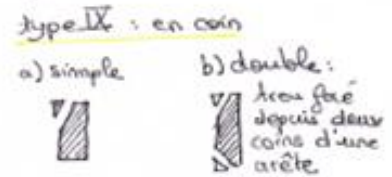 type IX : en coin
a) simple
b) double :
trou foré
depuis deux
coins d'une
arête